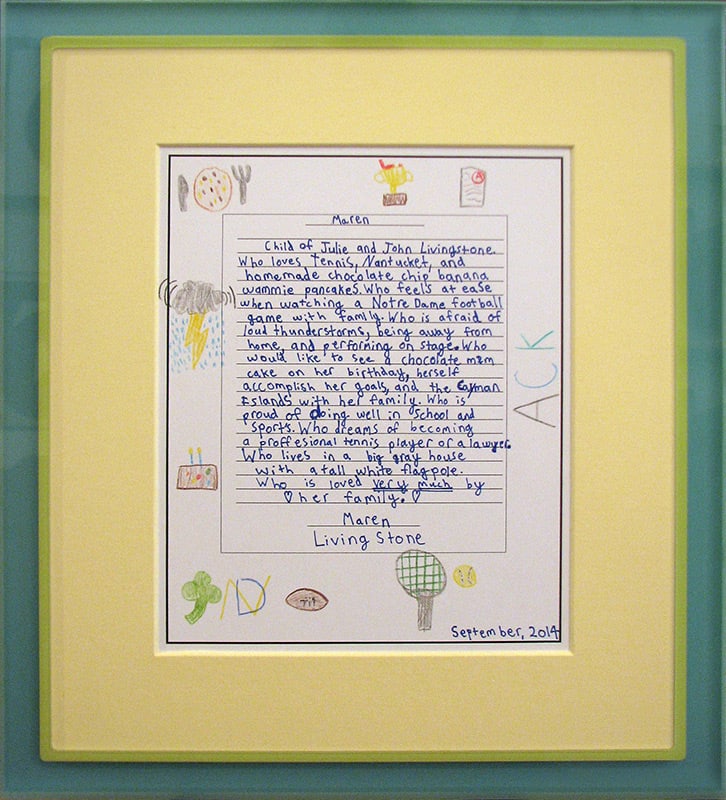 Maren
Child of Julie and John Livingstone.
Who loves Tennis, Nantucket, and
homemade chocolate chip banana
wammie pancakes. Who feels at ease
when watching a Notre Dame football
game with family. Who is afraid of
loud thunderstorms, being away from
home, and performing on stage. Who
would like to see a chocolate m&m
cake on her birthday, herself
accomplish her goals, and the Cayman
Eslands with her family. Who is
proud of doing well in school and
sports. Who dreams of becoming
a proffesional tennis player or a lawyer.
Who lives in a big gray house
with a tall white flagpole.
Who is loved very much by
♡ her family. ♡
Maren
Living Stone
ACK
ND
September, 2014